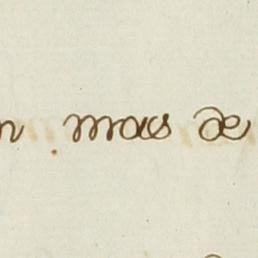 n mas de